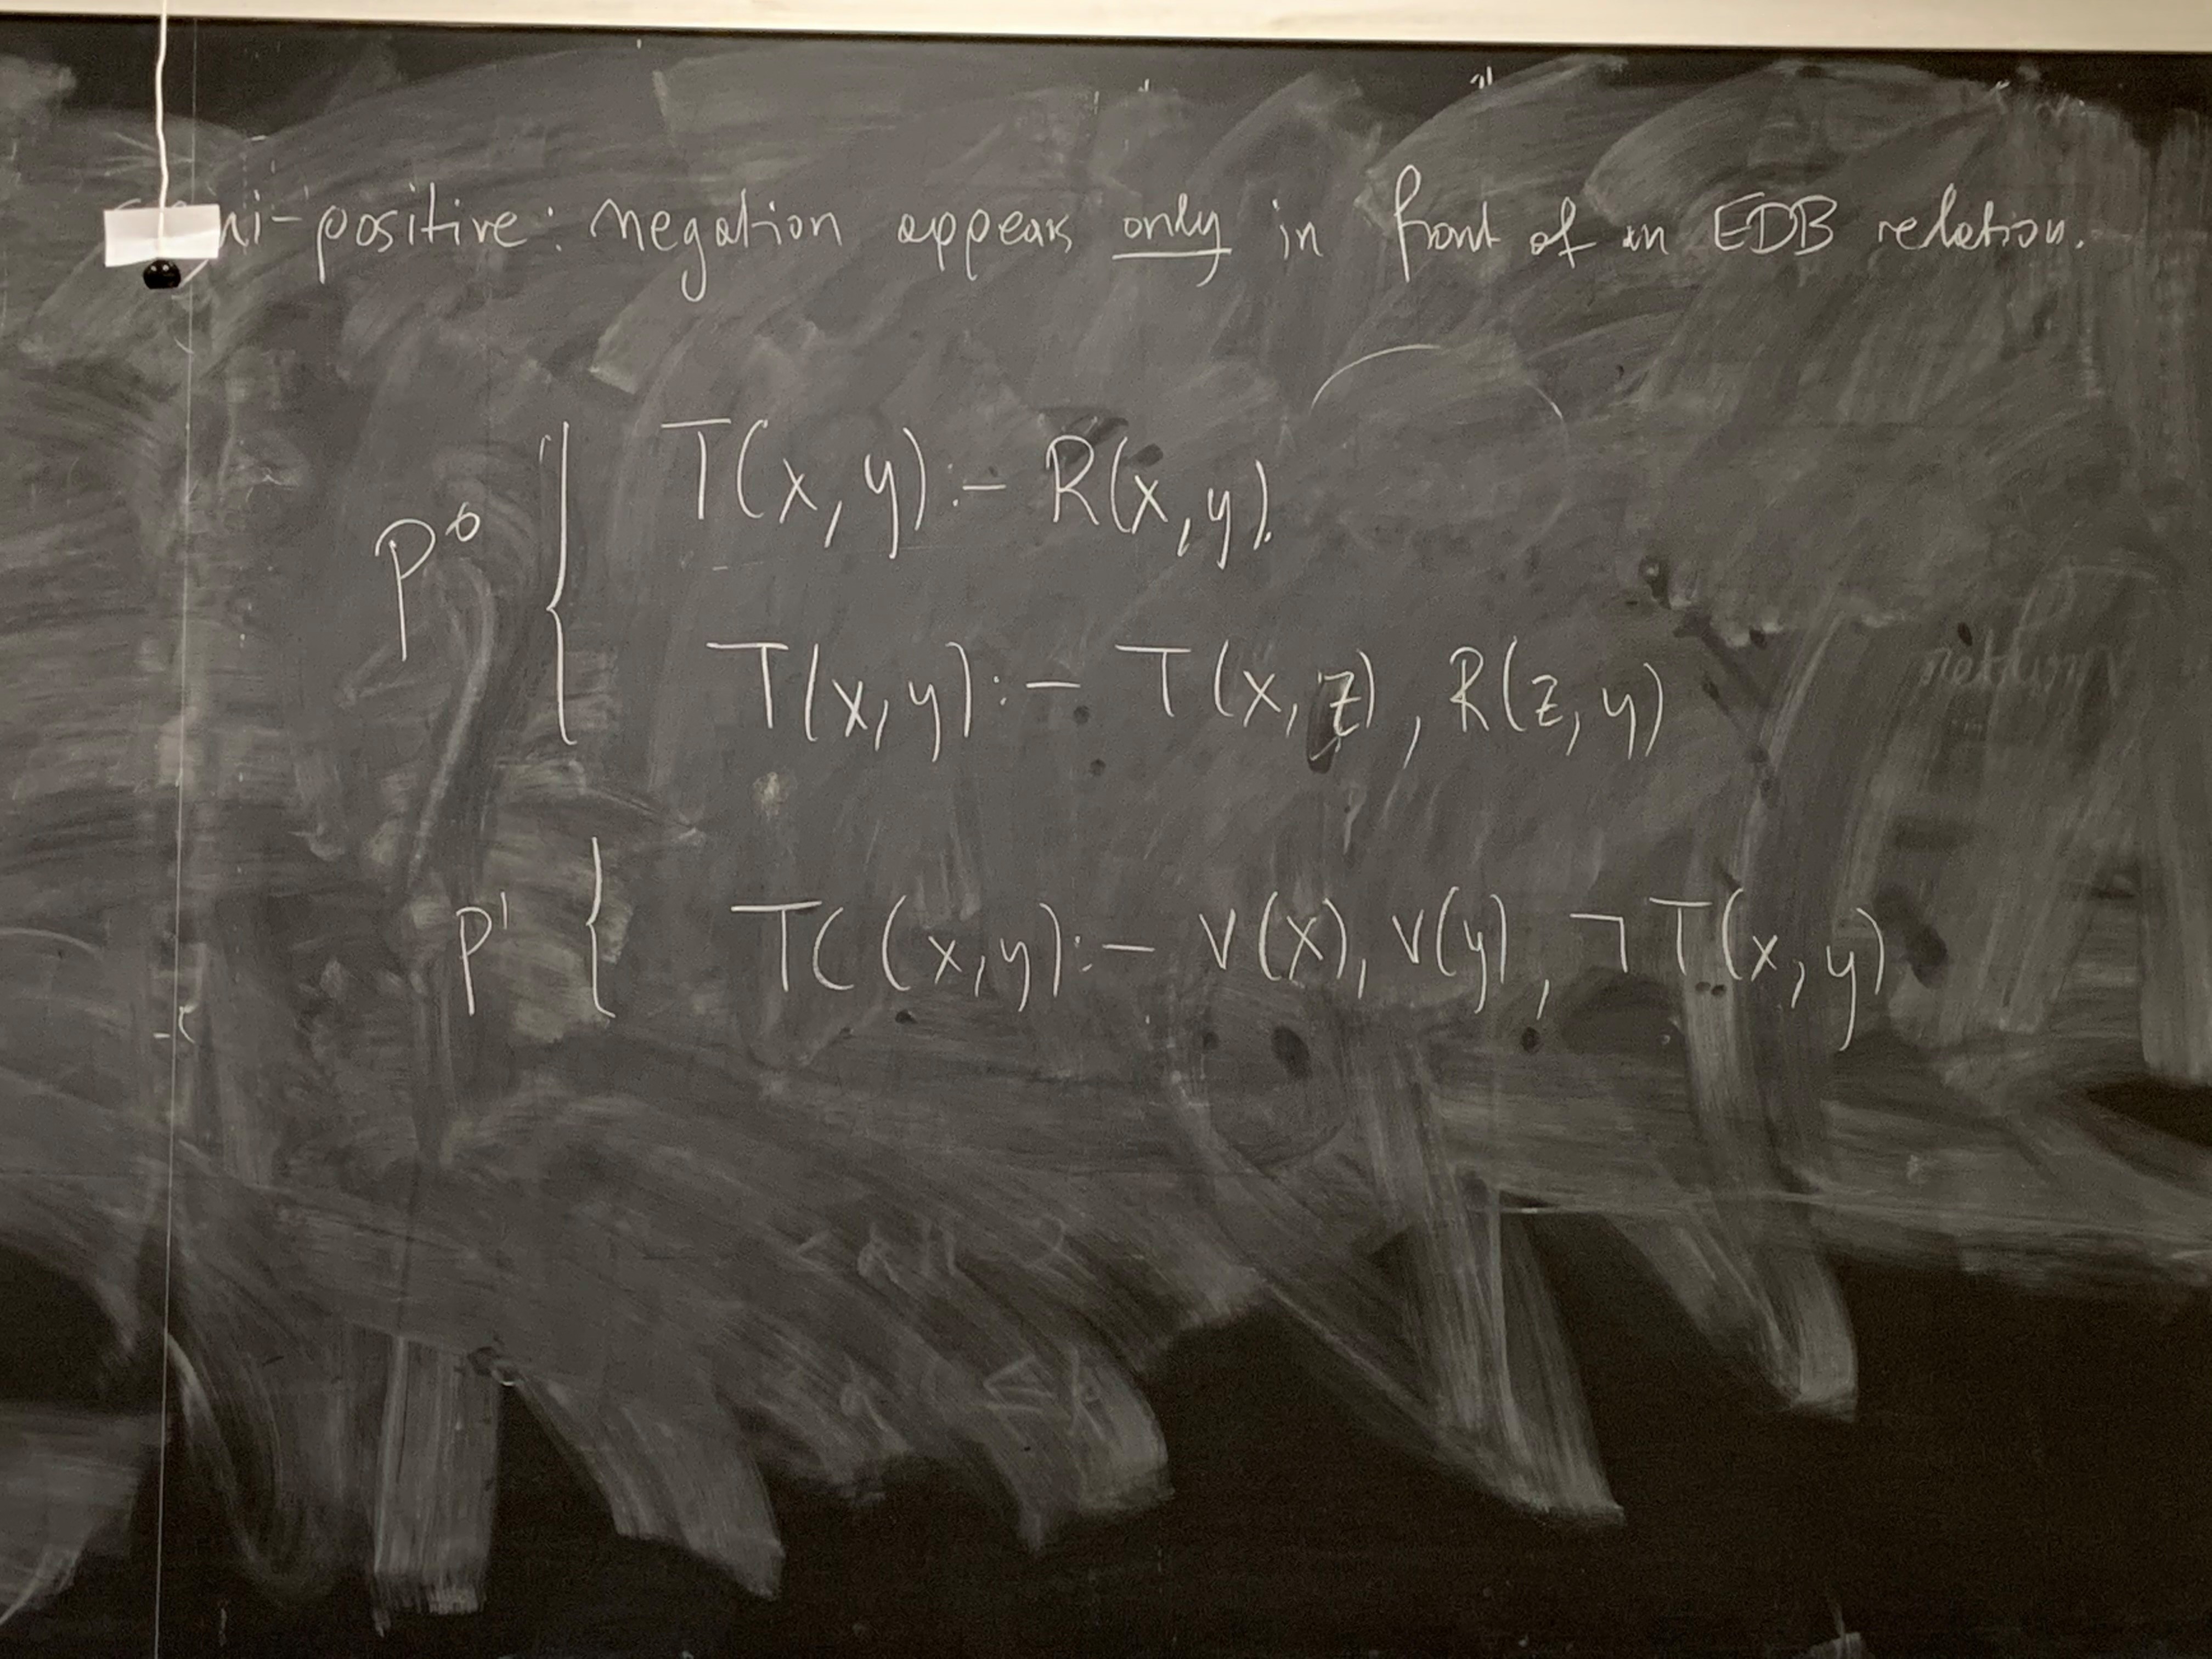 mi-positive: negation appears only in front of an EDB relation.
P⁰ { T(x,y) :- R(x,y).
T(x,y) :- T(x,z), R(z,y)
P¹ { TC(x,y) :- V(x), V(y), ¬T(x,y)